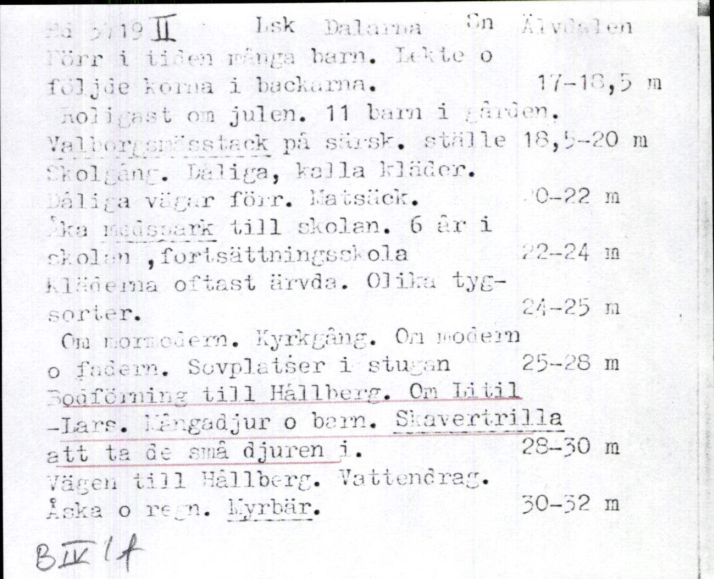 Md 5719 II Lsk Dalarna Sn Älvdalen
Förr i tiden många barn. Lekte o
följde korna i backarna. 17-18,5 m
Roligast om julen. 11 barn i gården.
Valborgsmässtack på särsk. ställe 18,5-20 m
Skolgång. Dåliga, kalla kläder.
Dåliga vägar förr. Matsäck. 20-22 m
Åka medspark till skolan. 6 år i
skolan ,fortsättningsskola 22-24 m
Kläderna oftast ärvda. Olika tyg-
sorter. 24-25 m
Om mormodern. Kyrkgång. Om modern
o fadern. Sovplatser i stugan 25-28 m
Bodförning till Hållberg. Om Litil
-Lars. Mångadjur o barn. Skavertrilla
att ta de små djuren i. 28-30 m
Vägen till Hållberg. Vattendrag.
Åska o regn. Myrbär. 30-32 m
B IV 1f